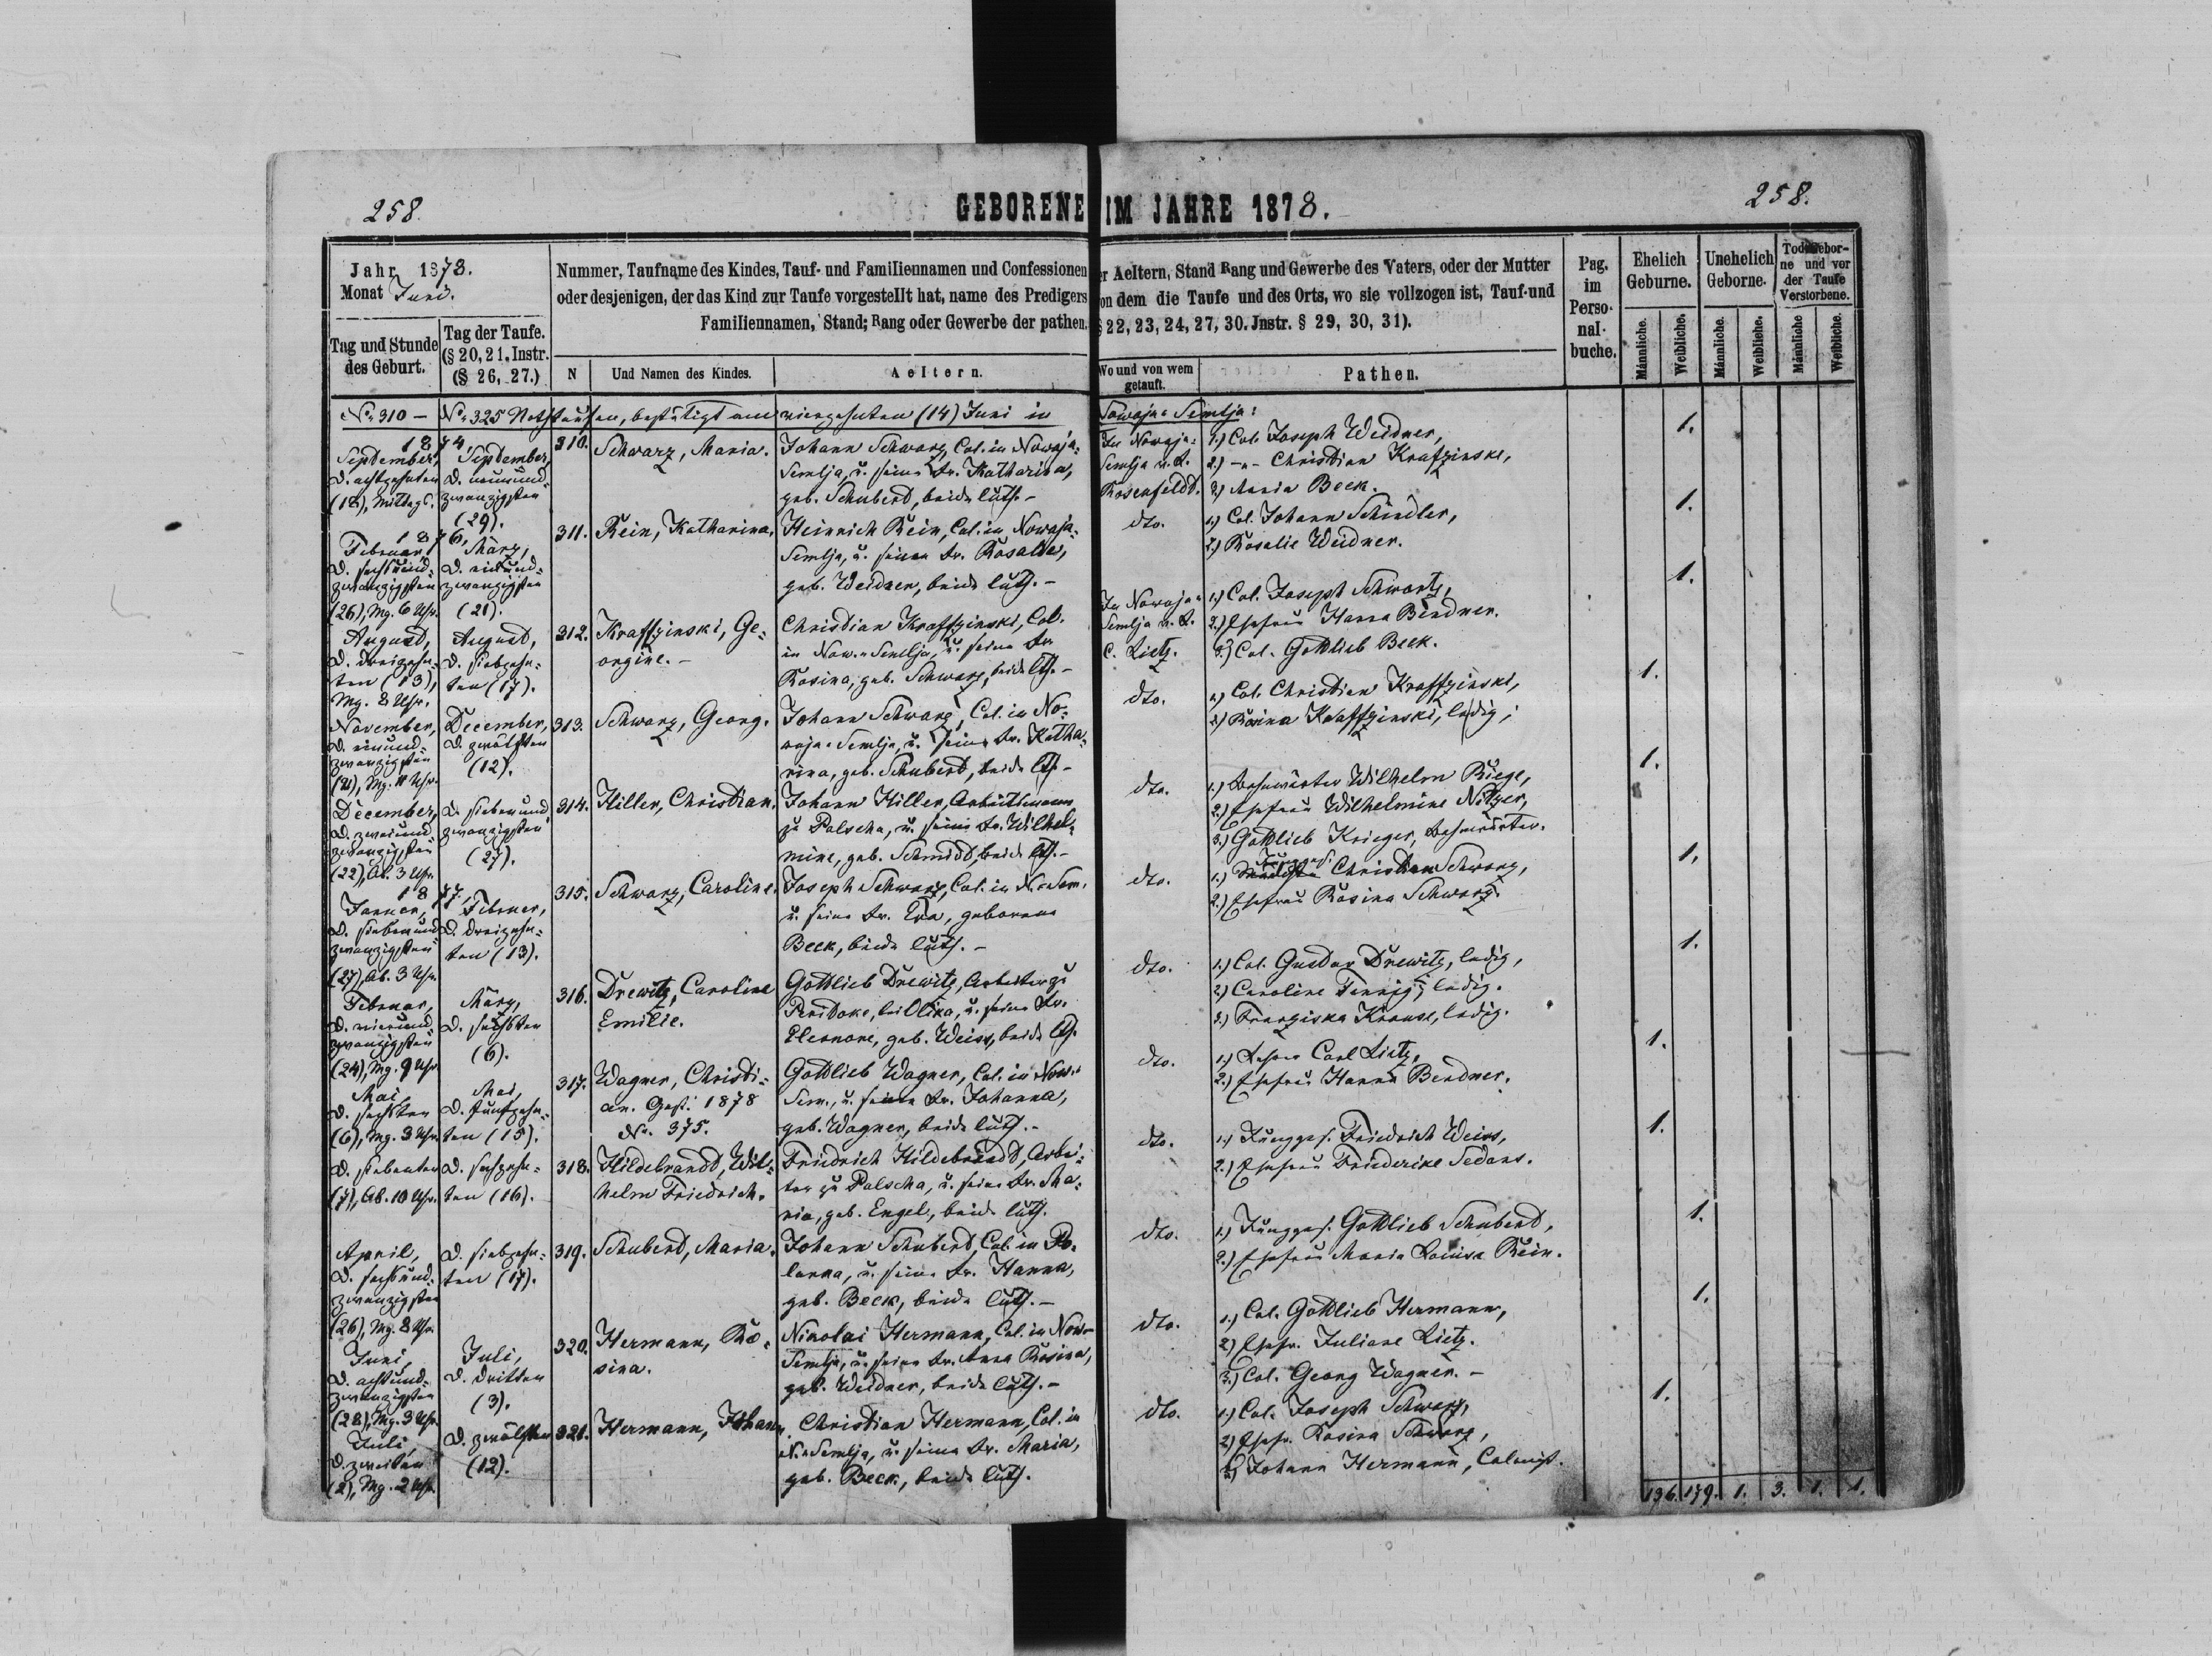 258.
GEBORENE IM JAHRE 1878.
258.
Jahr 1878.
Monat Juni.
Tag und Stunde
des Geburt.
Tag der Taufe.
(§ 20, 21. Instr.
(§ 26, 27.)
Nummer, Taufname des Kindes, Tauf- und Familiennamen und Confessionen
oder desjenigen, der das Kind zur Taufe vorgestellt hat, name des Predigers
Familiennamen, Stand; Rang oder Gewerbe der pathen.
N
Und Namen des Kindes.
Aeltern.
er Aeltern, Stand Rang und Gewerbe des Vaters, oder der Mutter
on dem die Taufe und des Orts, wo sie vollzogen ist, Tauf-und
§ 22, 23, 24, 27, 30. Jnstr. § 29, 30, 31).
Wo und von wem
getauft.
Pathen.
Pag.
im
Perso-
nal-
buche.
Ehelich
Geburne.
Unehelich
Geborne.
Todtgebor-
ne und vor
der Taufe
Verstorbene.
Männliche.
Weibliche.
Männliche.
Weibliche.
Männliche
Weibliche.
No 310 – No 325 Nothtaufen, bestätigt am vierzehnten (14) Juni in Nowaja-Semlja:
1874
September,
d. achtzehnten
(18), Mittags.
September,
d. neunund-
zwanzigsten
(29).
310.
Schwarz, Maria.
Johann Schwarz, Col. in Nowaja-
Semlja, u. seine Fr. Katharina,
geb. Schuberd, beide luth. –
In Nowaja-
Semlja v. L.
Rosenfeldt.
1.) Col. Joseph Weidner,
2.) -"- Christian Krafzinske,
3.) Maria Beck.
1.
1876,
Februar,
d. sechsund-
zwanzigsten
(26), Mg. 6 Uhr.
März,
d. einund-
zwanzigsten
(21).
311.
Rein, Katharina.
Heinrich Rein, Col. in Nowaja-
Semlja, u. seine Fr. Rosalie,
geb. Weidner, beide luth. –
dto.
1.) Col. Johann Schindler,
2.) Rosalie Weidner.
1.
August,
d. dreizehn-
ten (13),
Mg. 8 Uhr.
August,
d. siebzehn-
ten (17).
312.
Kraffzinski, Ge-
orgine. –
Christian Kraffzinski, Col.
in Now.-Semlja, u. seine Fr.
Rosina, geb. Schwarz, beide lth. –
In Nowaja-
Semlja v. L.
C. Lietz.
1.) Col. Joseph Schwartz,
2.) Ehefrau Hanna Bendner.
3.) Col. Gottlieb Beck.
1.
November,
d. einund-
zwanzigsten
(21), Mg. 11 Uhr.
December,
d. zwölften
(12).
313.
Schwarz, Georg.
Johann Schwarz, Col. in No-
waja-Semlja, u. seine Fr. Katha-
rina, geb. Schuberd, beide lth. –
dto.
1.) Col. Christian Kraffzinski,
2.) Rosina Kraffzinski, ledig;
1.
December,
d. zweiund-
zwanzigsten
(22), Ab. 3 Uhr.
d. siebenund-
zwanzigsten
(27).
314.
Hiller, Christian.
Johann Hiller, Arbeitsmann
zu Palscha, u. seine Fr. Wilhel-
mine, geb. Schmidd, beide lth. –
dto.
1.) Bahnwärter Wilhelm Riege,
2.) Ehefrau Wilhelmine Nitzer,
3.) Gottlieb Krieger, Bahnwärter.
1.
1877,
Januar,
d. siebenund-
zwanzigsten
(27), Ab. 3 Uhr.
Februar,
d. dreizehn-
ten (13).
315.
Schwarz, Caroline.
Joseph Schwarz, Col. in N.-Sem.
u. seine Fr. Eva, geborene
Beck, beide luth. –
dto.
Jungges.
1.) Christian Schwarz,
2.) Ehefrau Rosina Schwarz.
1.
Februar,
d. vierund-
zwanzigsten
(24), Mg. 9 Uhr
März,
d. sechsten
(6).
316.
Drewitz, Caroline
Emilie.
Gottlieb Drewitz, Arbeiter zu
Peridoke, bei Olika, u. seine Fr.
Eleonore, geb. Weiss, beide lth.
dto.
1.) Col. Gustav Drewitz, ledig,
2.) Caroline Fennig, ledig.
3.) Franziska Krause, ledig.
1.
Mai,
d. sechsten
(6), Mg. 3 Uhr.
Mai,
d. fünfzehn-
ten (15).
317.
Wagner, Christi-
an. Gest. 1878
No. 375.
Gottlieb Wagner, Col. in Now.-
Sem., u. seine Fr. Johanna,
geb. Wagner, beide luth. –
dto.
1.) Lehrer Carl Lietz,
2.) Ehefrau Hanna Bendner.
1.
d. siebenten
(7), Ab. 10 Uhr.
d. sechzehn-
ten (16).
318.
Hildebrandd, Wil-
helm Friedrich.
Friedrich Hildebrandd, Arbei-
ter zu Palscha, u. seine Fr. Ma-
ria, geb. Engel, beide luth.
dto.
1.) Jungges. Friedrich Weiss,
2.) Ehefrau Friederike Sedans.
1.
April,
d. sechsund-
zwanzigsten
(26), Mg. 8 Uhr.
d. siebzehn-
ten (17).
319.
Schuberd, Maria.
Johann Schuberd, Col. in Po-
lanka, u. seine Fr. Hanna,
geb. Beck, beide luth. –
dto.
1.) Jungges. Gottlieb Schuberd,
2.) Ehefrau Maria Louisa Rein.
1.
Juni,
d. achtund-
zwanzigsten
(28), Mg. 3 Uhr.
Juli,
d. dritten
(3).
320.
Hermann, Ro-
sina.
Nikolai Hermann, Col. in Now-
Semlja, u. seine Fr. Anna Rosina,
geb. Weidner, beide luth. –
dto.
1.) Col. Gottlieb Hermann,
2.) Ehefr. Juliane Lietz.
3.) Col. Georg Wagner. –
1.
Juli,
d. zweiten
(2), Mg. 2 Uhr.
d. zwölften
(12).
321.
Hermann, Johann.
Christian Hermann, Col. in
N.-Semlja, u. seine Fr. Maria,
geb. Beck, beide luth.
dto.
1.) Col. Joseph Schwarz,
2.) Ehefr. Rosina Schwarz,
3.) Johann Hermann, Colonist.
1.
136. 179. 1. 3. 1. 1.